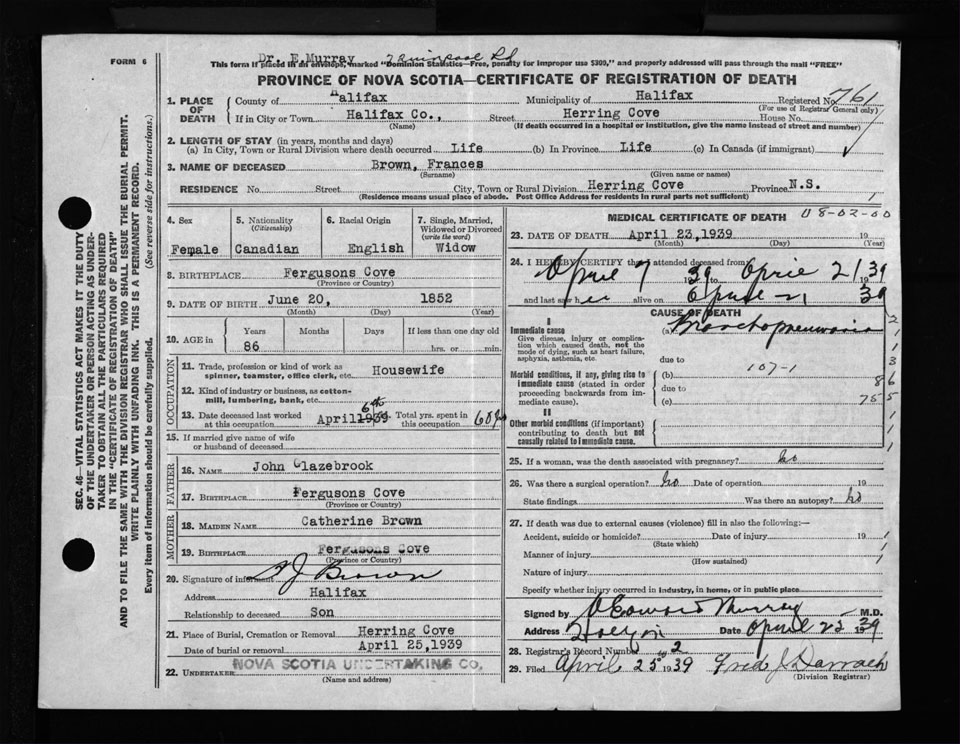 FORM 6
Dr. E.Murray
This form if placed in an envelope, marked "Dominion Statistics—Free, penalty for improper use $300," and properly addressed will pass through the mail "FREE"
PROVINCE OF NOVA SCOTIA—CERTIFICATE OF REGISTRATION OF DEATH
1. PLACE OF DEATH County of Halifax Municipality of Halifax Registered No. 761
(For use of Registrar General only)
If in City or Town Halifax Co., Street Herring Cove House No.
(Name) (If death occurred in a hospital or institution, give the name instead of street and number)
2. LENGTH OF STAY (in years, months and days)
(a) In City, Town or Rural Division where death occurred Life (b) In Province Life (c) In Canada (if immigrant)
3. NAME OF DECEASED Brown, Frances
(Surname) (Given name or names)
RESIDENCE No. Street City, Town or Rural Division Herring Cove Province N.S.
(Residence means usual place of abode. Post Office Address for residents in rural parts not sufficient) 1
4. Sex Female
5. Nationality (Citizenship) Canadian
6. Racial Origin English
7. Single, Married, Widowed or Divorced (write the word) Widow
8. BIRTHPLACE Fergusons Cove
(Province or Country)
9. DATE OF BIRTH June 20, 1852
(Month) (Day) (Year)
10. AGE in Years Months Days If less than one day old
86 hrs. or min.
OCCUPATION
11. Trade, profession or kind of work as spinner, teamster, office clerk, etc. Housewife
12. Kind of industry or business, as cotton-mill, lumbering, bank, etc.
13. Date deceased last worked at this occupation April 6th 1939 Total yrs. spent in this occupation 60 yrs
15. If married give name of wife or husband of deceased
FATHER
16. NAME John Glazebrook
17. BIRTHPLACE Fergusons Cove
(Province or Country)
MOTHER
18. MAIDEN NAME Catherine Brown
19. BIRTHPLACE Fergusons Cove
(Province or Country)
20. Signature of informant J Brown
Address Halifax
Relationship to deceased Son
21. Place of Burial, Cremation or Removal Herring Cove
Date of burial or removal April 25,1939
22. UNDERTAKER NOVA SCOTIA UNDERTAKING CO.
(Name and address)
MEDICAL CERTIFICATE OF DEATH 118-02-00
23. DATE OF DEATH April 23,1939 19
(Month) (Day) (Year)
24. I HEREBY CERTIFY that I attended deceased from
April 7 1939 to April 21 1939
and last saw her alive on April 21 1939
CAUSE OF DEATH
I
Immediate cause
Give disease, injury or complication which caused death, not the mode of dying, such as heart failure, asphyxia, asthenia, etc.
(a) Bronchopneumonia
due to
Morbid conditions, if any, giving rise to immediate cause (stated in order proceeding backwards from immediate cause).
(b) 107-1
due to
(c)
II
Other morbid conditions (if important) contributing to death but not causally related to immediate cause.
2
1
1
3
86
755
1
1
1
25. If a woman, was the death associated with pregnancy? No
26. Was there a surgical operation? No Date of operation 19
State findings Was there an autopsy? No
27. If death was due to external causes (violence) fill in also the following:—
Accident, suicide or homicide? Date of injury 19
(State which)
Manner of injury
(How sustained)
Nature of injury
Specify whether injury occurred in industry, in home, or in public place
Signed by Edward Murray M.D.
Address Halifax Date April 25 1939
28. Registrar's Record Number 2
29. Filed April 25th 1939 Fred J Darrach
(Division Registrar)
SEC. 46—VITAL STATISTICS ACT MAKES IT THE DUTY
OF THE UNDERTAKER OR PERSON ACTING AS UNDER-
TAKER TO OBTAIN ALL THE PARTICULARS REQUIRED
IN THE "CERTIFICATE OF REGISTRATION OF DEATH"
AND TO FILE THE SAME WITH THE DIVISION REGISTRAR WHO SHALL ISSUE THE BURIAL PERMIT.
WRITE PLAINLY WITH UNFADING INK. THIS IS A PERMANENT RECORD.
Every item of information should be carefully supplied. (See reverse side for instructions.)